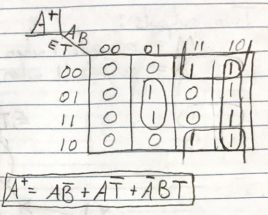 A⁺ AB
ET 00 01 11 10
00 0 0 1 1
01 0 1 0 1
11 0 1 0 1
10 0 0 1 1
A⁺ = AB̅ + AT̅ + A̅BT